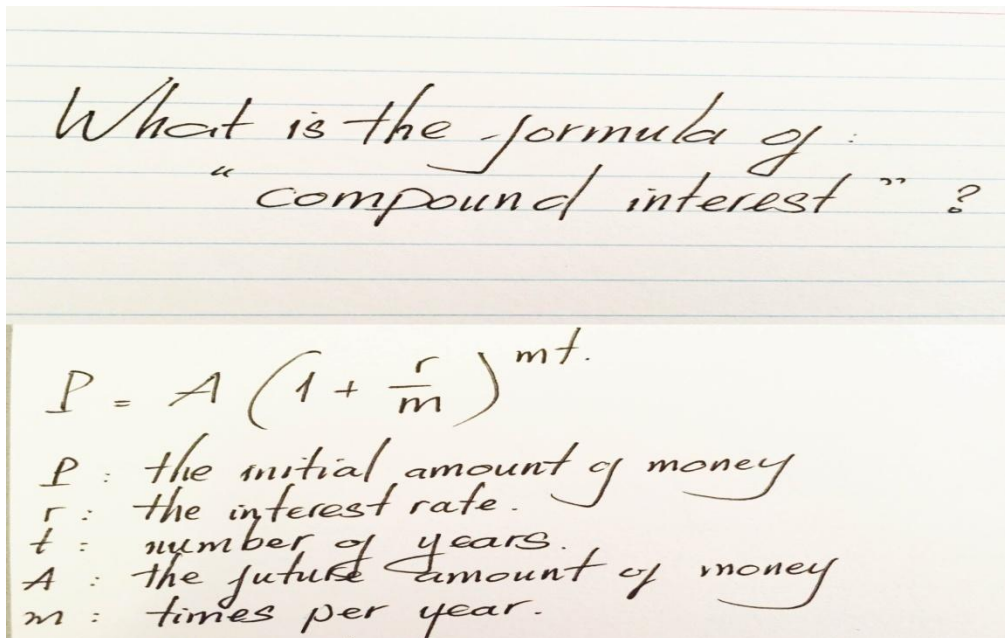 What is the formula of :
" compound interest " ?
P = A ( 1 + r/m ) ^ mt.
P : the initial amount of money
r : the interest rate.
t : number of years.
A : the future amount of money
m : times per year.